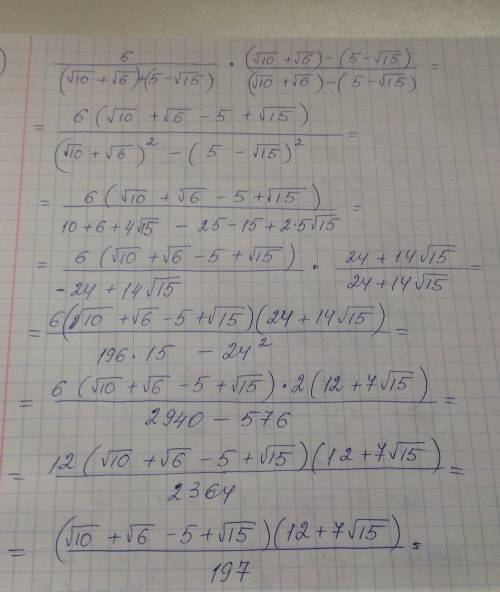 )
6 / ((√10 + √6) + (5 − √15)) · ((√10 + √6) − (5 − √15)) / ((√10 + √6) − (5 − √15)) =
= 6 (√10 + √6 − 5 + √15) / ((√10 + √6)² − (5 − √15)²) =
= 6 (√10 + √6 − 5 + √15) / (10 + 6 + 4√15 − 25 − 15 + 2·5√15) =
= 6 (√10 + √6 − 5 + √15) / (−24 + 14√15) · (24 + 14√15) / (24 + 14√15) =
= 6 (√10 + √6 − 5 + √15) (24 + 14√15) / (196 · 15 − 24²) =
= 6 (√10 + √6 − 5 + √15) · 2 (12 + 7√15) / (2940 − 576) =
= 12 (√10 + √6 − 5 + √15) (12 + 7√15) / 2364 =
= (√10 + √6 − 5 + √15) (12 + 7√15) / 197 =